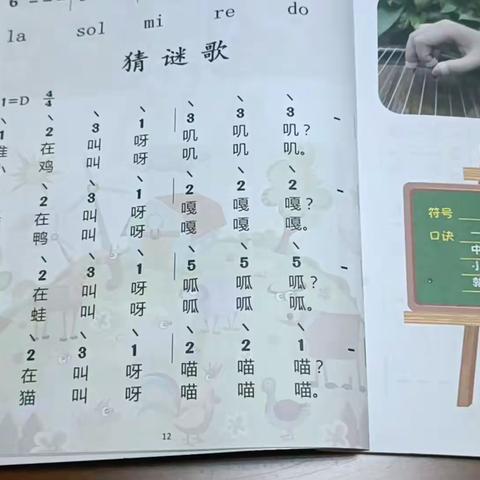 6 - - -
la sol mi re do
猜谜歌
1=D 4/4
1 2 3 1 | 3 3 3 -
谁 在 叫 呀 叽 叽 叽？
小 鸡 叫 呀 叽 叽 叽。
2 3 1 | 2 2 2 -
在 叫 呀 嘎 嘎 嘎？
鸭 叫 呀 嘎 嘎 嘎。
2 3 1 | 5 5 5 -
在 叫 呀 呱 呱 呱？
蛙 叫 呀 呱 呱 呱。
2 3 1 | 2 2 1 -
在 叫 呀 喵 喵 喵？
猫 叫 呀 喵 喵 喵。
12
符号
口诀
中
小